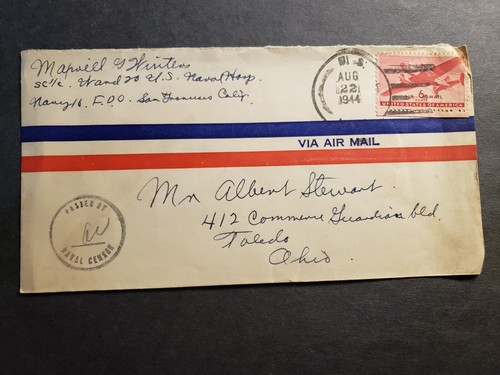 Marvell G Winters
SC1/c. Ward 20 U.S. Naval Hosp.
Navy 16. F.P.O. San Francisco Calif.
U.S.
AUG
22
1944
6¢
UNITED STATES OF AMERICA
VIA AIR MAIL
Mr Albert Stewart.
412 Commerce Guardian bld.
Toledo
Ohio.
PASSED BY
NAVAL CENSOR